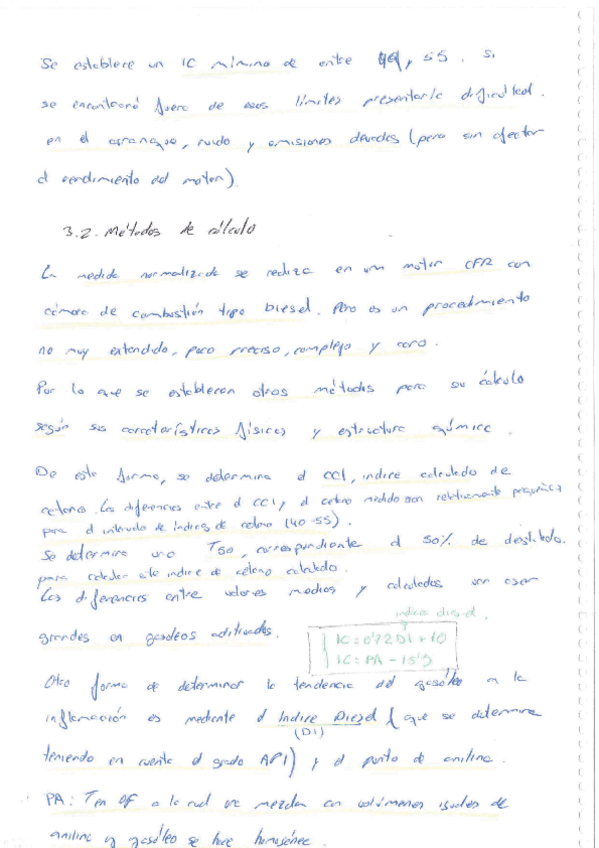 Se establece un IC mínimo de entre 49, 55. Si
se encontrará fuera de esos límites presentaría dificultad.
en el arranque, ruido y emisiones (pero sin afectar
el rendimiento del motor).
3.2. Métodos de cálculo
La medida normalizada se realiza en un motor CFR con
cámara de combustión tipo Diesel. Pero es un procedimiento
no muy extendido, poco preciso, complejo y caro.
Por lo que se establecen otros métodos para su cálculo
según sus características físicas y estructura química.
De esta forma, se determina el CCI, indice calculado de
cetano. Las diferencias entre el CCI y el cetano medido son relativamente pequeñas
para el intervalo de índices de cetano (40-55).
Se determina una T50, correspondiente al 50% de destilado.
para calcular este indice de cetano calculado.
Las diferencias entre valores medios y calculados son
grandes en gasóleos aditivados.
indice diesel.
IC = 0'72DI + 10
IC = PA - 15'5
Otra forma de determinar la tendencia del gasóleo a la
inflamación es mediante el Indice Diesel (que se determina
(DI)
teniendo en cuenta el grado API) y el punto de anilina.
PA: Tm ºF a la cual una mezcla con volúmenes iguales de
anilina y gasóleo se hace